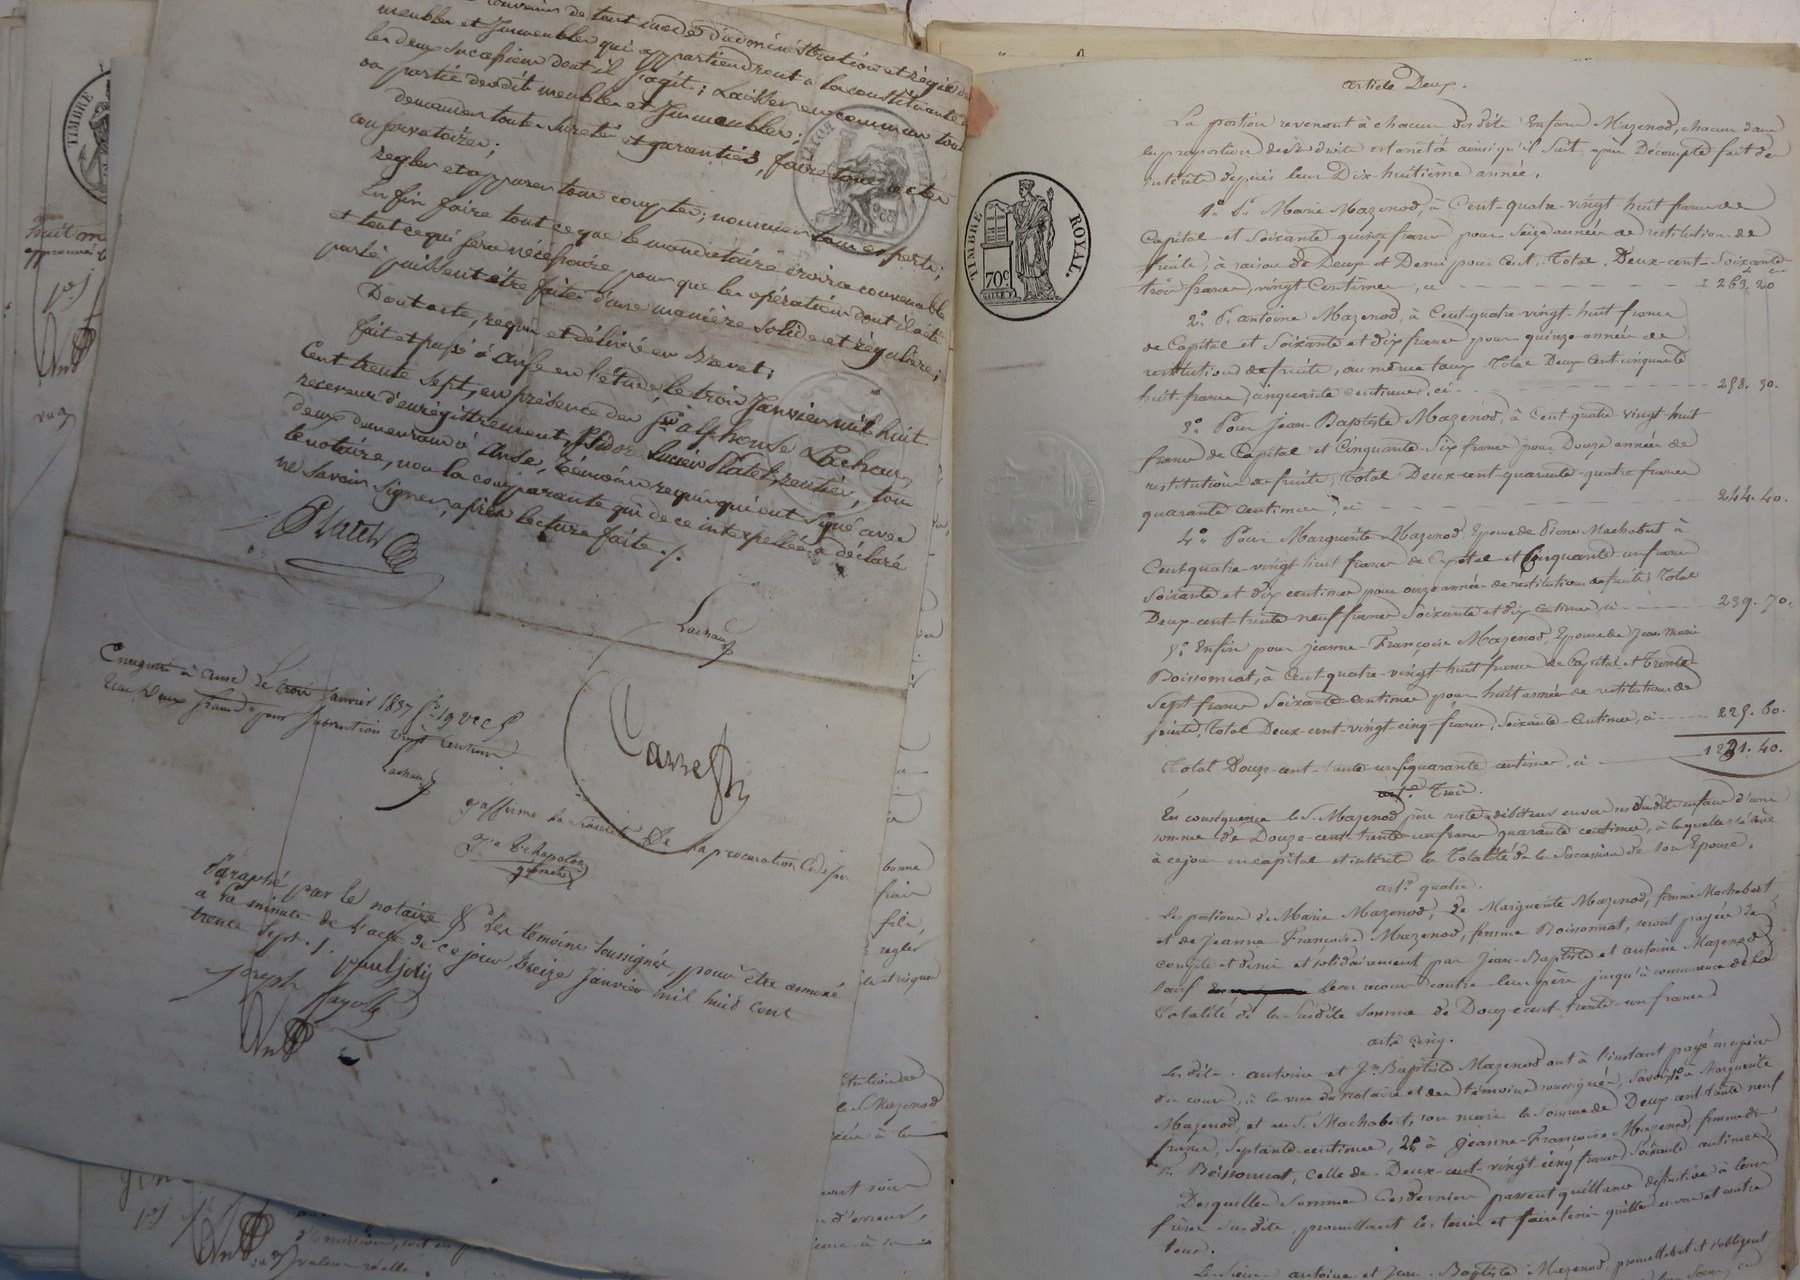 de tout mode d'administration et régir des
meubles et Immeubles qui appartiendront à la constituante
les deux succession dont il s'agit; Laisser en commun tout
ou partie desdits meubles et Immeubles;
demander toutes suretés et garanties, faire tous actes
conservatoires;
regler et appurer tous comptes; nommer tous experts;
Enfin faire tout ce que le mandataire croira convenable
et tout ce qui sera nécéssaire pour que les opérations dont il a été
parlé puissent être faites d'une manière solide et régulière;
Dont acte, requis et délivré en Brevet;
fait et passé à Anse en l'étude, le trois Janvier mil huit
Cent trente sept, en présence des Srs alphonse Lachaux
receveur d'enrégistrement, & Isidore Lucien Platet, rentier, tous
deux demeurant à Anse, témoins requis qui ont signé avec
le notaire, non la comparante qui de ce interpellée a déclaré
ne savoir signer, après lecture faite ./.
Platet
Lachaux
Carret
Enregistré à Anse Le trois Janvier 1837 fo 19 vo C 5
Reçu deux francs pour subvention vingt centimes
Lachaux
j'affirme la sincerité de la procuration
Paraphé par le notaire & les témoins soussignés, pour être annexé
à la minute de l'acte de ce jour treize Janvier mil huit cent
trente sept. /.
paul joly
Joseph
TIMBRE
huit
approuvé
bonne
frais
fils,
regler
et risque
le S. Mazenod
d'erreur,
valeur réelle.
TIMBRE ROYAL.
70c
Article Deux.
La portion revenant à chacun desdits Enfans Mazenod, chacun dans
les proportions de ses droits est arrêté ainsi qu'il suit, apres Décompte fait des
intérêts depuis leur Dix-huitième année.
1o Pr Marie Mazenod, à Cent quatre-vingt huit francs de
Capital et Soixante quinze francs pour seize années de restitution de
fruits, à raison de Deux et Demi pour cent. Total, Deux-cent-Soixante
trois francs, vingt Centimes, ci 263. 20
2o Pr antoine Mazenod, à Cent-quatre-vingt-huit francs
de Capital et Soixante et dix francs pour quinze années de
restitution de fruits, au même taux Total Deux Cent cinquante
huit francs, cinquante centimes, ci 258. 50.
3o Pour Jean-Baptiste Mazenod, à Cent quatre vingt huit
francs de Capital et Cinquante-Six francs pour Douze années de
restitution de fruits, Total Deux-cent-quarante-quatre francs
quarante centimes, ci 244. 40.
4o Pour Marguerite Mazenod, Epouse de Pierre Machabert à
Cent quatre-vingt huit francs de Capital et Cinquante un francs
Soixante et dix centimes pour onze années de restitution de fruits, Total
Deux-cent-trente-neuf francs Soixante et dix Centimes, ci 239. 70.
5o Enfin pour Jeanne-Françoise Mazenod, Epouse de Jean Marie
Boissonnat, à Cent quatre-vingt huit francs de Capital et Trente-
Sept francs Soixante centimes pour huit années de restitution de
fruits, Total Deux-cent-vingt-cinq francs, Soixante-Centimes, ci 225. 60.
Total Douze-cent-trente-un fs quarante centimes, ci 1231. 40.
art. Trois.
En conséquence le S. Mazenod père reste débiteur envers ses dits enfans d'une
somme de Douze-cent-trente-un francs quarante centimes, à laquelle s'élève
à ce jour en capital et intérêts la Totalité de la Succession de son Epouse.
arte quatre.
Les portions de Marie Mazenod, de Marguerite Mazenod, femme Machabert,
et de Jeanne-Françoise Mazenod, femme Boissonnat, seront payées de
compte et demi et solidairement par Jean-Baptiste et antoine Mazenod
sauf leur recours contre leur père jusqu'à concurrence de la
Totalité de la Susdite Somme de Douze cent-trente-un francs
arte cinq.
Lesdits antoine et Jn Baptiste Mazenod ont à l'instant payé en espèces
de cours, à la vue du notaire et des témoins soussignés, savoir 1o à Marguerite
Mazenod, et au S. Machabert, son mari la somme de Deux cent trente neuf
francs, Septante centimes, 2o à Jeanne-Françoise Mazenod, femme du
Sr. Boissonnat, celle de Deux-cent-vingt cinq francs Soixante centimes,
Desquelles Sommes ces derniers passent quittance définitive à leurs
frères susdits, promettant les tenir et faire tenir quittes envers et contre
tous.
Les Sieurs antoine et Jean-Baptiste Mazenod promettent et s'obligent